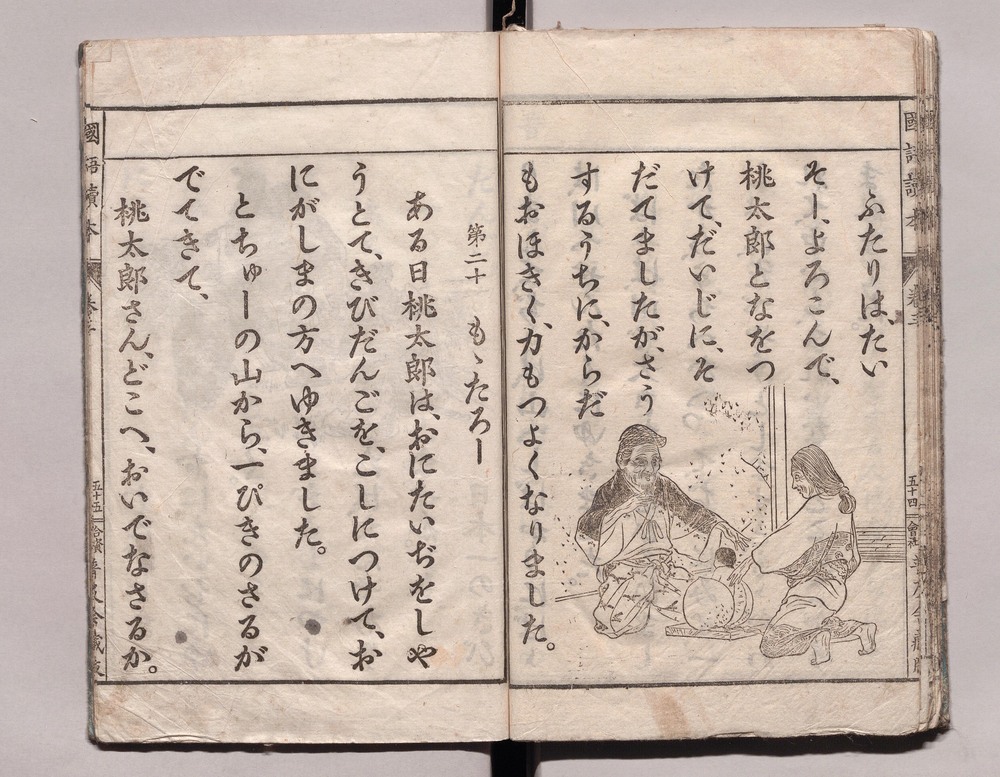 國語讀本
卷三
五十四
會社
ふたりは、たい
そー、よろこんで、
桃太郎となをつ
けて、だいじに、そ
だてましたが、さう
するうちに、からだ
もおほきく、力もつよくなりました。
第二十 もゝたろー
ある日桃太郎は、おにたいぢをしや
うとて、きびだんごを、こしにつけて、お
にがしまの方へゆきました。
とちゅーの山から、一ぴきのさるが
でてきて、
桃太郎さん、どこへ、おいでなさるか。
國語讀本
五十五